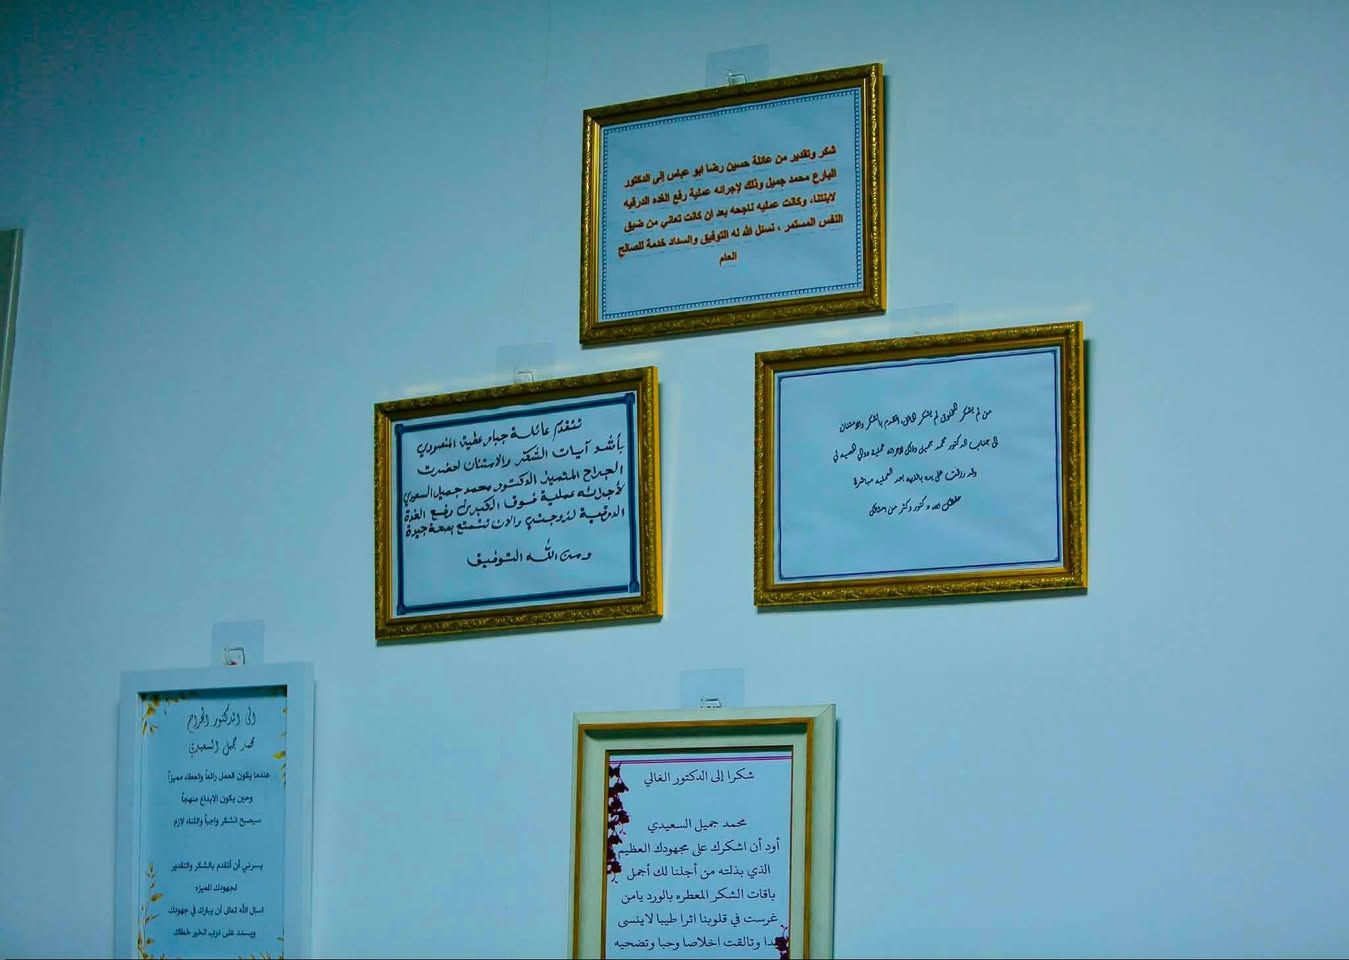 شكر وتقدير من عائلة حسين رضا ابو عباس إلى الدكتور
البارع محمد جميل وذلك لإجرائه عملية رفع الغده الدرقيه
لابنتنا، وكانت عمليه ناجحه بعد ان كانت تعاني من ضيق
النفس المستمر ، نسئل الله له التوفيق والسداد خدمة للصالح
العام
من لم يشكر المخلوق لم يشكر الخالق اتقدم بالشكر والامتنان
الى جناب الدكتور محمد جميل وذلك لاجرائه عملية دوالي الخصيه لي
وقد رزقت على يده بالذريه بعد العمليه مباشرة
حفظك الله دكتور وكثر من امثالك
تتقدم عائلة جبار عطية المنصوري
بأشد آيات الشكر والامتنان لحضرت
الجراح المتميز الدكتور محمد جميل السعودي
لأجرائه عملية فوق الكبرى رفع الغدة
الدرقية لزوجتي والان تتمتع بصحة جيدة
ومن الله التوفيق
الى الدكتور الجراح
محمد جميل السعيدي
عندما يكون العمل رائعاً والعطاء مميزاً
وحين يكون الابداع منهجاً
سيصبح الشكر واجباً والثناء لازم
يسرني أن أتقدم بالشكر والتقدير
لجهودك المميزه
اسال الله تعالى أن يبارك في جهودك
ويسدد على درب الخير خطاك
شكرا إلى الدكتور الغالي
محمد جميل السعيدي
أود أن اشكرك على مجهودك العظيم
الذي بذلته من أجلنا لك أجمل
باقات الشكر المعطره بالورد يامن
غرست في قلوبنا اثرا طيبا لاينسى
وتالقت اخلاصا وحبا وتضحيه